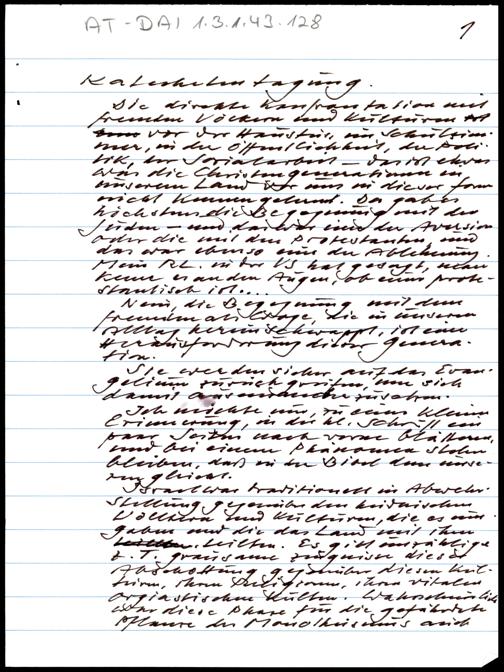 AT-DAI 1.3.1.43.128
1
Katechetentagung.
Die direkte Konfrontation mit
fremden Völkern und Kulturen ist
vor der Haustür, im Schulzim-
mer, in der Öffentlichkeit, der Poli-
tik, der Sozialarbeit – das ist etwas
was die Christengenerationen in
unserem Land vor uns in dieser Form
nicht kennengelernt. Da gab es
höchstens die Begegnung mit den
Juden – und das war nur der Aversion
oder die mit den Protestanten, und
das war ebenso nur der Ablehnung.
Mein RL. in der VS hat gesagt, man
kenne es an den Augen, ob eins prote-
stantisch ist...
Nein, die Begegnung mit dem
Fremden als Frage, die in unseren
Alltag hereinschwappt, ist eine
Herausforderung dieser Genera-
tion.
Sie werden sicher auf das Evan-
gelium zurückgreifen, um sich
damit auseinanderzusetzen.
Ich möchte nur, zu einer kleinen
Erinnerung, in der hl. Schrift ein
paar Seiten nach vorne blättern,
und bei einem Phänomen stehen
bleiben, daß in der Bibel dem unse-
ren gleicht.
Israel war traditionell in Abwehr-
stellung gegenüber den heidnischen
Völkern und Kulturen, die es um-
gaben und die das Land mit ihm
teilten. Es gibt unzählige
z.T. grausame Zeugnisse dieser
Abschottung gegenüber diesen Kul-
turen, ihren Religionen, ihren vitalen
orgiastischen Kulten. Wahrscheinlich
war diese Phase für die gefährdete
Pflanze des Monotheismus auch